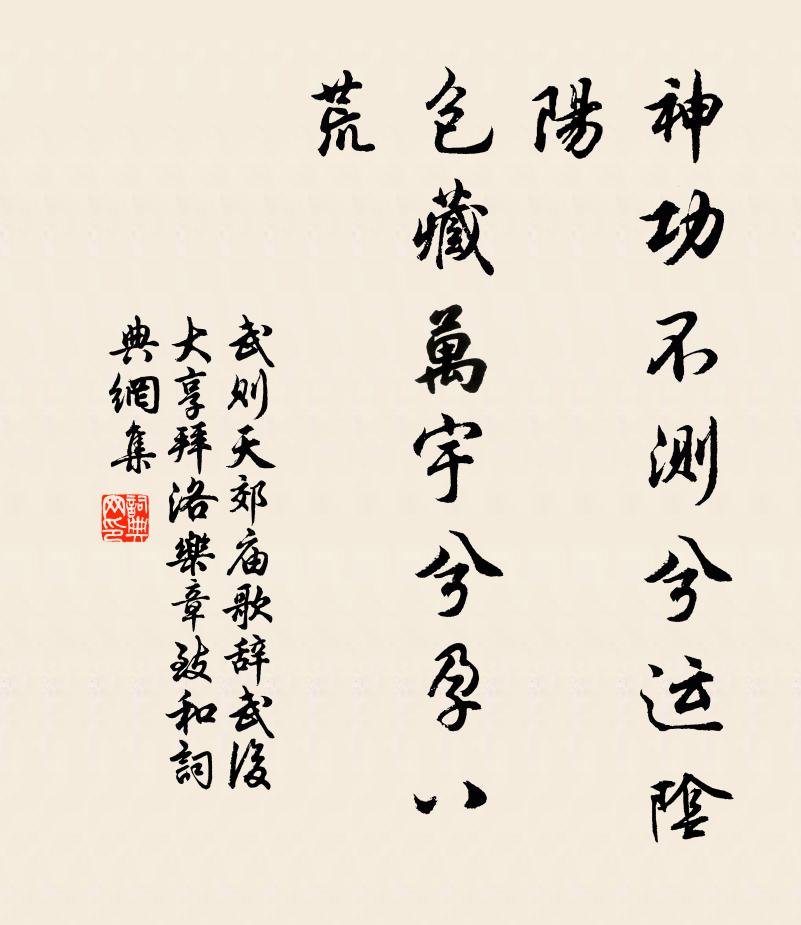 神功不測兮运陰
陽
包藏萬宇兮孕八
荒
武则天郊庙歌辞武後
大享拜洛樂章致和詞
典網集
詞典
网印